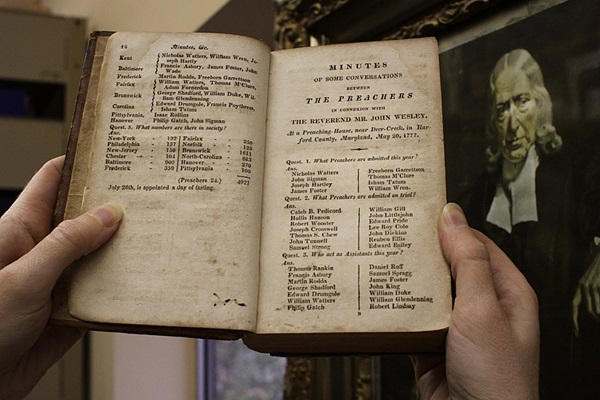 14 Minutes, &c.
Kent Nicholas Watters, William Wren, Jo-
seph Hartly
Baltimore Francis Asbury, James Foster, John
Wade
Frederick Martin Rodda, Freeborn Garrettson
Fairfax William Watters, Thomas M'Clure,
Adam Fornerdon
Brunswick George Shadford, William Duke, Wil-
liam Glendenning
Carolina Edward Drumgole, Francis Poythress,
Isham Tatum
Pittsylvania, Isaac Rollins
Hanover Philip Gatch, John Sigman
Quest. 5. What numbers are there in society?
Ans.
New-York 132 Fairfax 350
Philadelphia 137 Norfolk 125
New-Jersey 150 Brunswick 1611
Chester 104 North-Carolina 683
Baltimore 900 Hanover 270
Frederick 359 Pittsylvania 100
(Preachers 24.) 4921
July 26th, is appointed a day of fasting.
MINUTES
OF SOME CONVERSATIONS
BETWEEN
THE PREACHERS
IN CONNEXION WITH
THE REVEREND MR. JOHN WESLEY,
At a Preaching-House, near Deer-Creek, in Har-
ford County, Maryland, May 20, 1777.
Quest. 1. What Preachers are admitted this year?
Ans.
Nicholas Watters Freeborn Garrettson
John Sigman Thomas M'Clure
Joseph Hartley Isham Tatum
James Foster William Wren.
Quest. 2. What Preachers are admitted on trial?
Ans.
Caleb B. Pedicord William Gill
Hollis Hanson John Littlejohn
Robert Wooster Edward Pride
Joseph Cromwell Lee Roy Cole
Thomas S. Chew John Dickins
John Tunnell Reuben Ellis
Samuel Strong Edward Bailey
Quest. 3. Who act as Assistants this year?
Ans.
Thomas Rankin Daniel Ruff
Francis Asbury Samuel Spragg
Martin Rodda James Foster
George Shadford John King
Edward Drumgole William Duke
William Watters William Glendenning
Philip Gatch Robert Lindsay